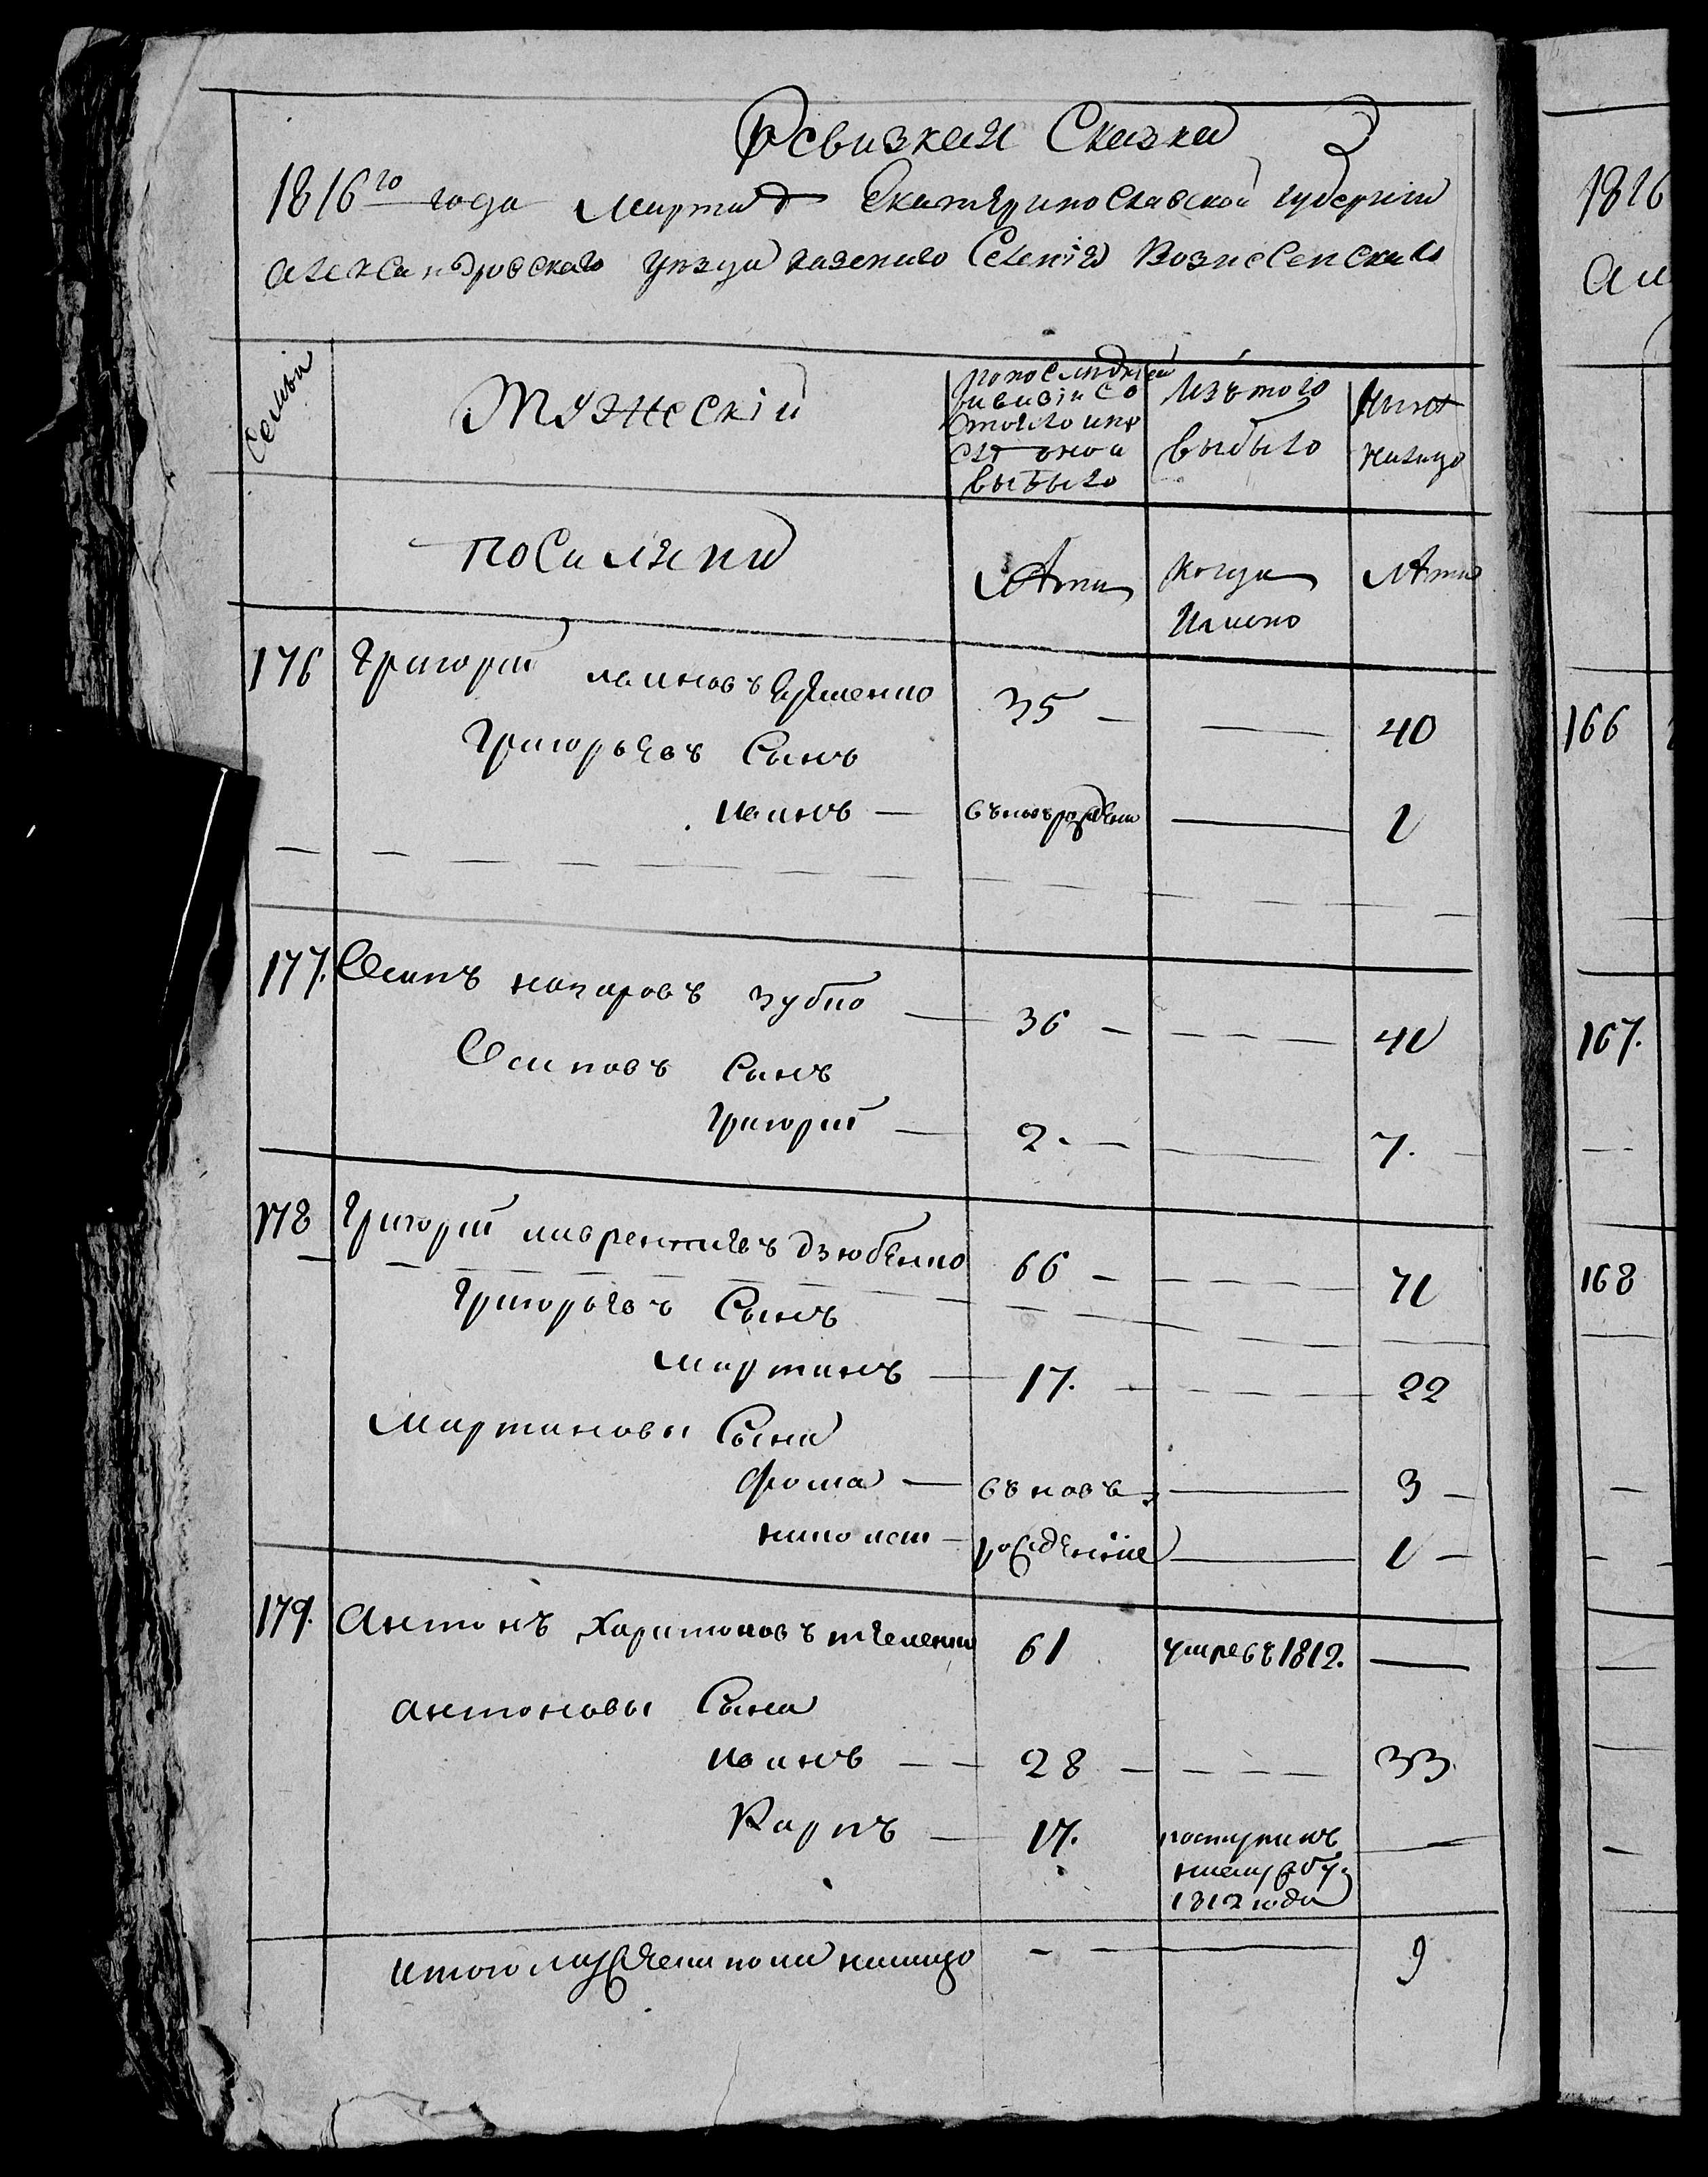 Ревизкая Сказка
1816го года Марта д Екатяринославской губернии
Александровского уезда казенаго Селенія Вознесенскаго
Семьи
Мужескій
по последней
ревизіи со
стояло и по
сле оной
выбыло
Изъ того
выбыло
Ныне
налицо
поселяни
Лета
Когда
Имено
Лета
176 Григорій Ивановъ Ефименко 35 — — 40
Григорьевъ Сынъ
Иванъ — въновърождени — 1
177. Осипъ Назаровъ Зубко — 36 — — 41
Осиповъ Сынъ
Григорій — 2. — — 7.
178 Григорій Лаврентіевъ Дзюбенко 66 — — 71
Григорьевъ Сынъ
Мартинъ — 17. — — 22
Мартиновы Сына
Фома — въновъ — 3 —
рожденніе — 1 —
179. Антонъ Харитоновъ 61 умревъ 1812. —
Антоновы Сына
Иванъ — — 28 — — 33
Карпъ — 17. —
1812 года
Итого мужеска пола налицо — — 9
1816
Ал
166
167.
168